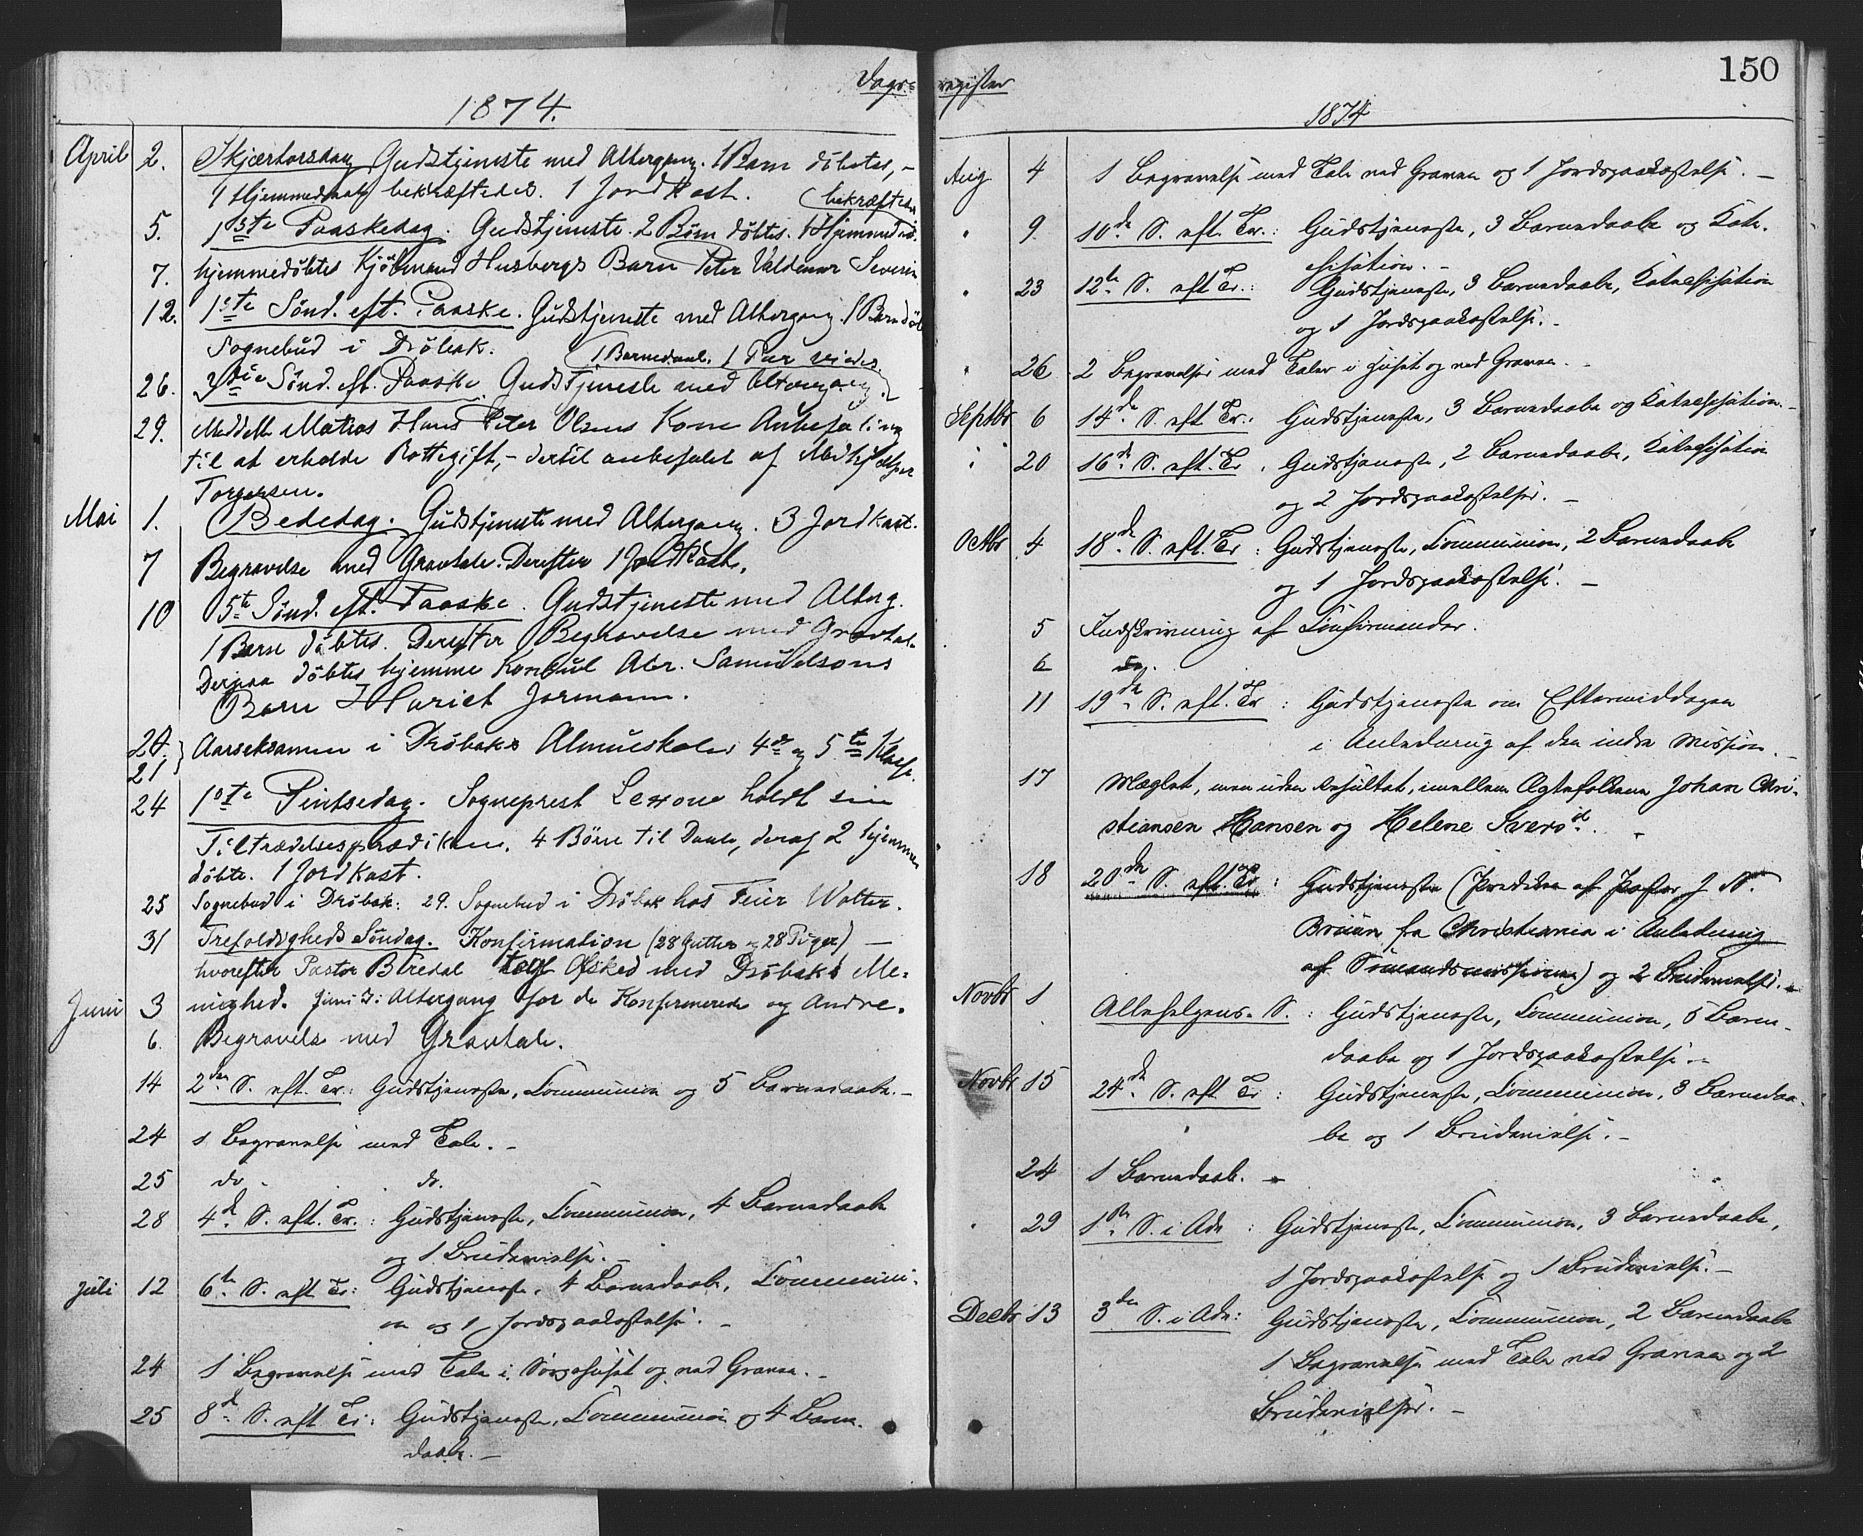 Dags-register
150
1874.
April 2. Skjærtorsdag Gudstjeneste med Altergang. 1 Barn döbtes, -
1 Hjemmedaab bekræftedes. 1 Jordkast.
bekræftedes
5. 1ste Paaskedag. Gudstjeneste. 2 Børn døbtes. 1 Hjemmed.
7. hjemmedöbtes Kjöbmand Husbergs Barn Peter Valdemar Severin
12. 1ste Sönd. eft. Paaske. Gudstjeneste med Altergang. 1 Barn döbt
Sognebud i Dröbak.
1 Barnedaab. 1 Par viedes.
26. 3die Sönd. eft. Paaske. Gudstjeneste med Altergang
29. Meddelt Matros Hans Peter Olsens Kone Anbefaling
til at erholde Rottegift, - dertil anbefalet af
Torgersen.
Mai 1. Bededag. Gudstjeneste med Altergang. 3 Jordkast.
7 Begravelse med Gravtale. Derefter 1 Jordkast.
10 5te Sönd. eft. Paaske. Gudstjeneste med Alterg.
1 Barn döbtes. Derefter Begravelse med Gravtale.
Derpaa döbtes hjemme Konsul Abr. Samuelsons
Barn Hariet Jormann.
20. 21. } Aarseksamen i Dröbaks Almueskoles 4de og 5te Klasse.
24 1ste Pintsedag. Sogneprest Lexow holdt sin
Tiltrædelsesprædiken. 4 Börn til Daab, deraf 2 hjemme
döbte. 1 Jordkast.
25 Sognebud i Dröbak. 29. Sognebud i Dröbak hos Feier Wolter.
31 Trefoldigheds Söndag. Konfirmation (28 Gutter og 28 Piger) -
hvorefter Pastor Bredal tog Afsked med Dröbaks Me-
Juni 3 nighed. Juni 3: Altergang for de Konfirmerede og Andre.
6. Begravelse med Gravtale.
14 2den S. eft. Tr.: Gudstjeneste, Communion og 5 Barnedaabe. -
24 1 Begravelse med Tale. -
25 do. do.
28 4de S. eft. Tr.: Gudstjeneste, Communion, 4 Barnedaabe
og 1 Brudevielse. -
Juli 12 6te S. eft Tr: Gudstjeneste, 4 Barnedaabe, Communi-
on og 1 Jordspaakastelse. -
24 1 Begravelse med Tale i Sørgehuset og ved Graven. -
25 8de S. eft Tr: Gudstjeneste, Communion og 4 Barne-
daabe. -
1874
Aug. 4 1 Begravelse med Tale ved Graven og 1 Jordspaakastelse. -
" 9. 10de S. eft. Tr.: Gudstjeneste, 3 Barnedaabe og Kate-
sisation. -
" 23 12te S. eft Tr.: Gudstjeneste, 3 Barnedaabe, Katechisation
og 1 Jordspaakastelse. -
" 26 2 Begravelser med Taler i Huset og ved Graven. -
Septbr 6 14de S. eft Tr.: Gudstjeneste, 3 Barnedaabe og Katechisation. -
" 20 16de S. eft. Tr. Gudstjeneste, 2 Barnedaabe, Katechisation
og 2 Jordspaakastelser. -
Octbr 4 18de S. eft. Tr: Gudstjeneste, Communion, 2 Barnedaabe
og 1 Jordspaakastelse. -
5 Indskrivning af Confirmander.
6 do.
11 19de S. eft. Tr: Gudstjeneste om Eftermiddagen
i Anledning af den indre Mission. -
17 Mæglet, men uden Resultat, imellem Ægtefolkene Johan Chri-
stiansen Hansen og Helene Sversd. -
18 20de S. eft. Tr: Gudstjeneste (Prediken af Pastor J. N.
Bruun fra Christiania i Anledning
af Sömandsmissionen) og 2 Brudevielser. -
Novbr 1 Allehelgens-S.: Gudstjeneste, Communion, 5 Barne-
daabe og 1 Jordspaakastelse. -
Novbr 15 24de S. eft Tr: Gudstjeneste, Communion, 3 Barnedaa-
be og 1 Brudevielse. -
24 1 Barnedaab. -
" 29 1ste S. i Adv: Gudstjeneste, Communion, 3 Barnedaabe,
1 Jordspaakastelse og 1 Brudevielse. -
Decbr 13 3die S. i Adv: Gudstjeneste, Communion, 2 Barnedaabe
1 Begravelse med Tale ved Graven og 2
Brudevielser. -